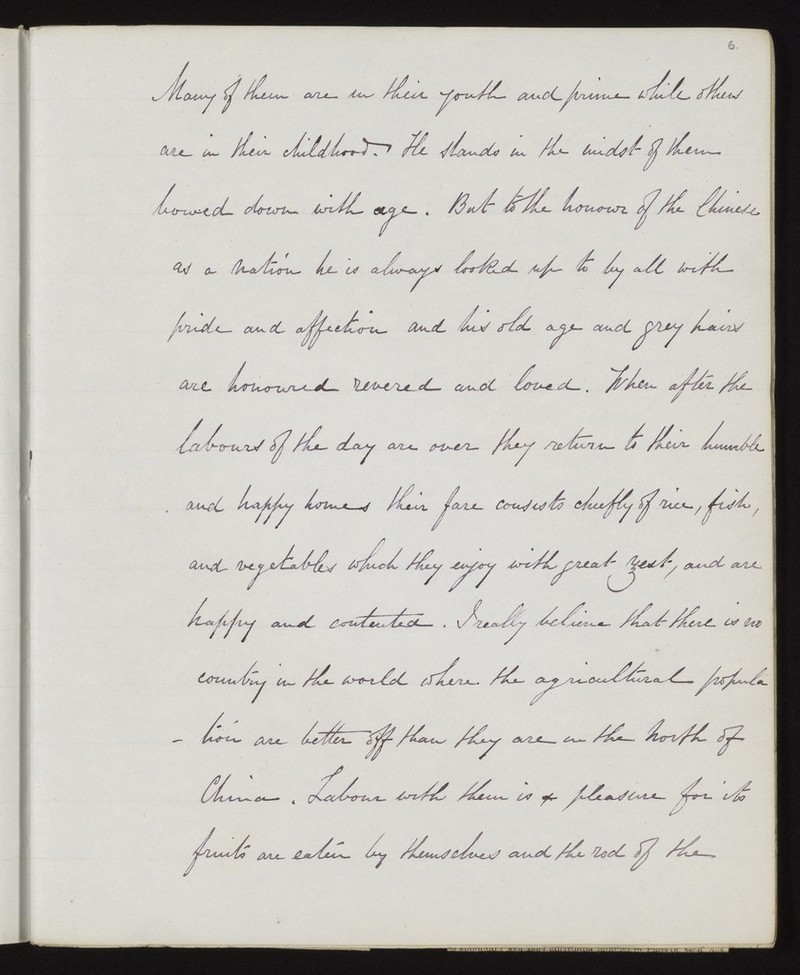 6.
Many of them are in their youth and prime while others
are in their childhood. He stands in the midst of them
bowed down with age. But to the honour of the Chinese
as a nation he is always looked up to by all with
pride and affection and his old age and grey hairs
are honoured revered and loved. When after the
labours of the day are over they return to their humble
and happy homes their fare consists chiefly of rice, fish,
and vegetables which they enjoy with great zest, and are
happy and contented. I really believe that there is no
country in the world where the agricultural popula
- tion are better off than they are in the north of
China. Labour with them is a pleasure for its
fruits are eaten by themselves and the rod of the